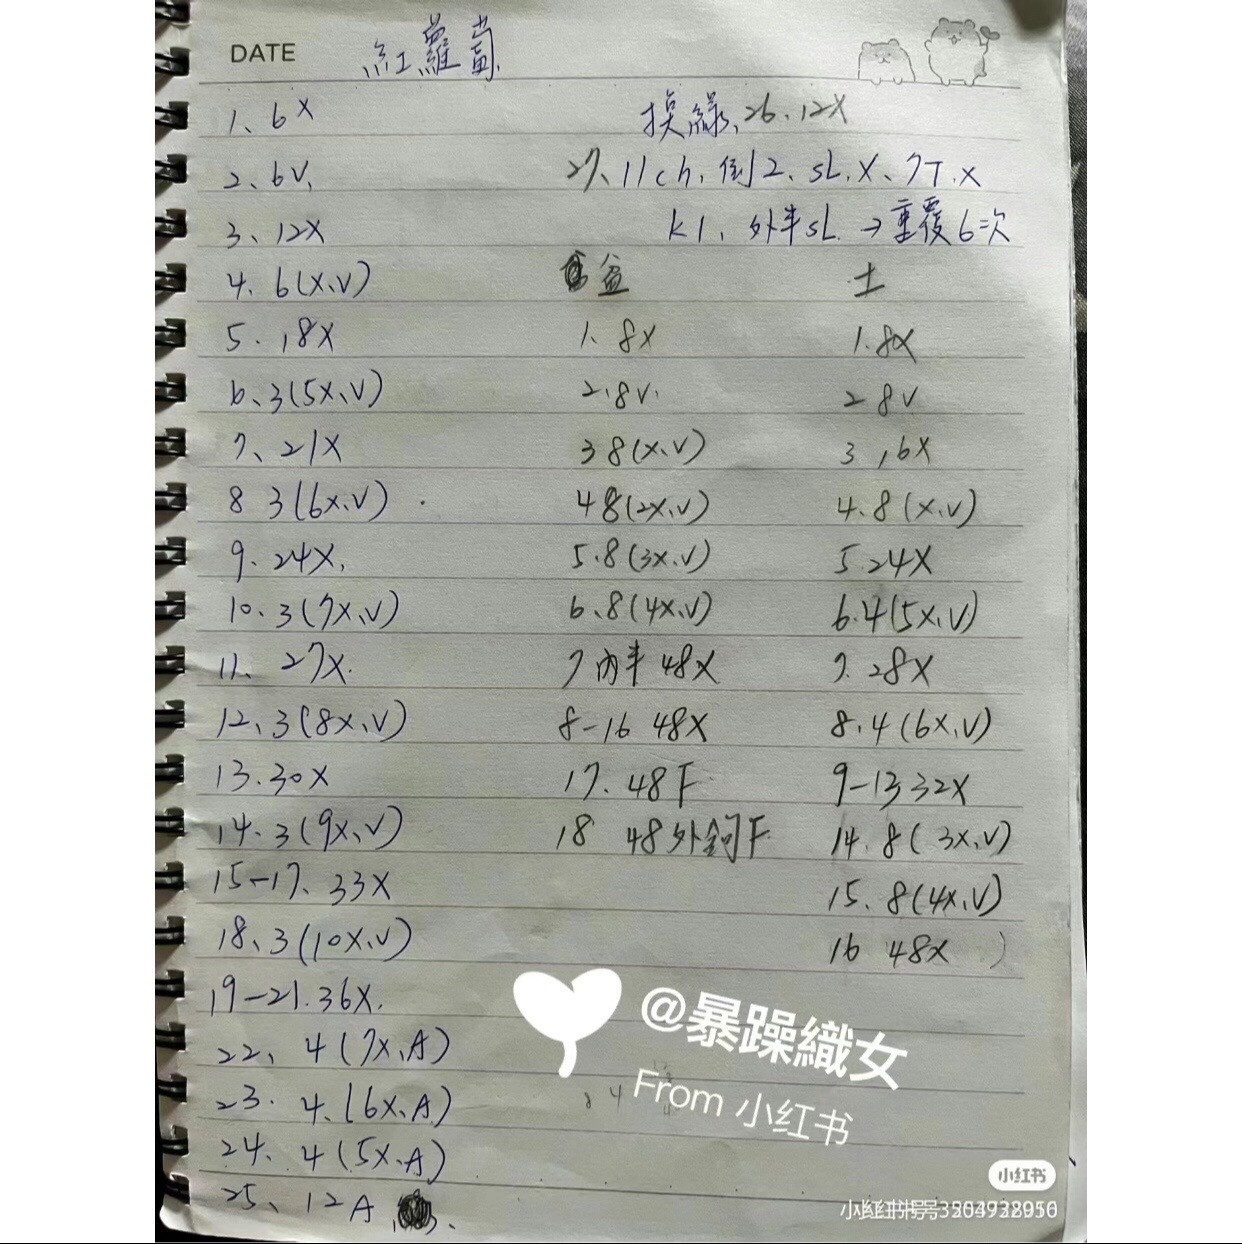 DATE 紅蘿蔔
1、6X
2、6V、
3、12X
4. 6(X、V)
5. 18X
6、3(5X、V)
7、21X
8 3(6X、V)
9. 24X、
10. 3(7X、V)
11、27X.
12、3(8X、V)
13. 30X
14. 3(9X、V)
15-17、33X
18、3(10X、V)
19-21. 36X.
22、4(7X、A)
23. 4、(6X、A)
24、4(5X、A)
25、12A
換線、26、12X
27、11ch、倒2、SL、X、7T、X
K1、外半SL → 重覆6次
盆
1、8X
2.8V.
3 8(X、V)
4 8(2X、V)
5.8(3X、V)
6、8(4X、V)
7 內半 48X
8-16 48X
17. 48F
18 48外鉤F
土
1.8X
2 8V
3 16X
4.8(X、V)
5 24X
6.4(5X、V)
7. 28X
8.4(6X、V)
9-13 32X
14. 8(3X、V)
15. 8(4X、V)
16 48X
@暴躁織女
From 小红书
小红书